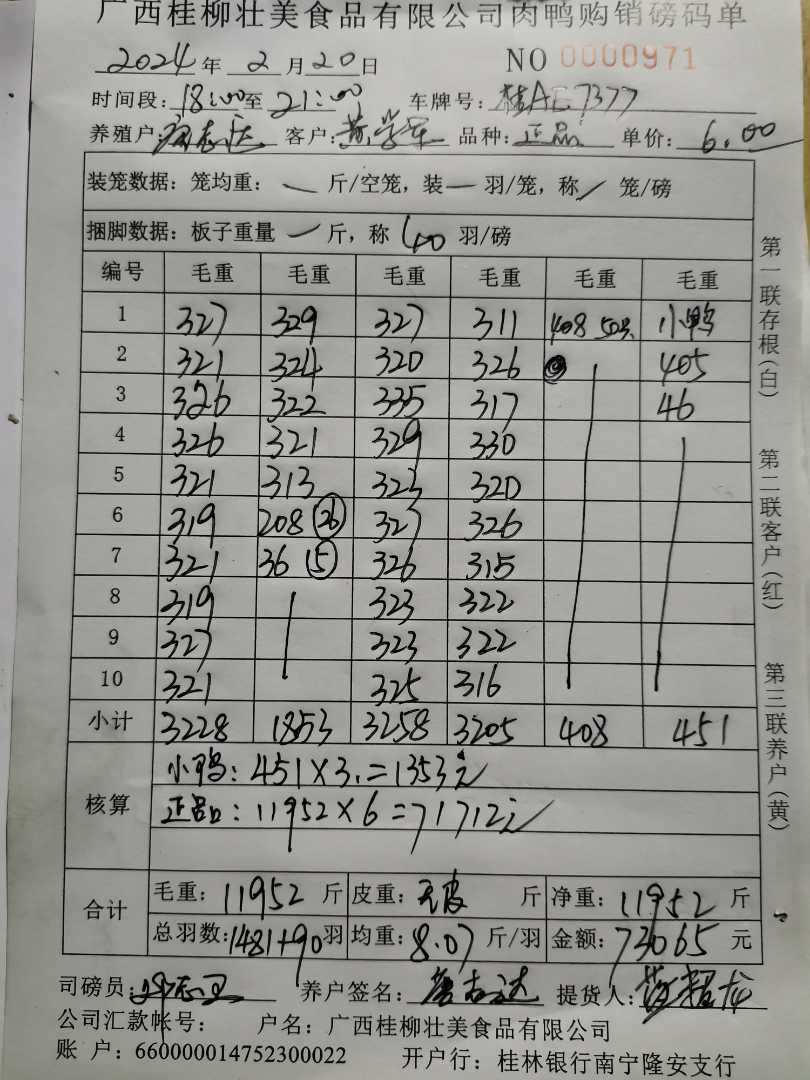 广西桂柳壮美食品有限公司肉鸭购销磅码单
2024年2月20日 NO 0000971
时间段:18:00至21:00 车牌号:桂AE7377
养殖户 志达 客户:黄学军 品种:正品 单价:6.00
装笼数据:笼均重:一斤/空笼,装一羽/笼,称/笼/磅
捆脚数据:板子重量一斤,称40羽/磅
编号 毛重 毛重 毛重 毛重 毛重 毛重
1 327 329 327 311 408 50只 小鸭
2 321 324 320 326 405
3 326 322 335 317 46
4 326 321 329 330
5 321 313 323 320
6 319 208 (26) 327 326
7 321 36 (5) 326 315
8 319 323 322
9 327 323 322
10 321 325 316
小计 3228 1853 3258 3205 408 451
核算
小鸭:451×3.=1353元
正品:11952×6=71712元
合计
毛重:11952斤 皮重:无皮 斤 净重:11952斤
总羽数:1481+90羽 均重:8.07斤/羽 金额:73065元
司磅员: 志 养户签名: 志达 提货人:
公司汇款帐号: 户名:广西桂柳壮美食品有限公司
账 户:660000014752300022 开户行:桂林银行南宁隆安支行
第一联存根(白) 第二联客户(红) 第三联养户(黄)